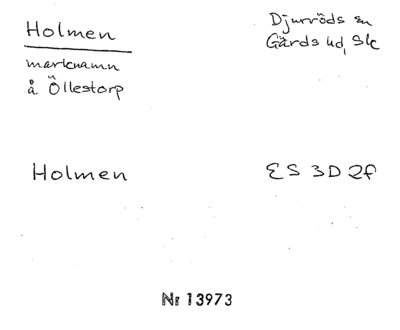 Holmen
Djurröds sn
Gärds hd, Sk
marknamn
å Öllestorp
Holmen
ES 3D 2f
Nr 13973